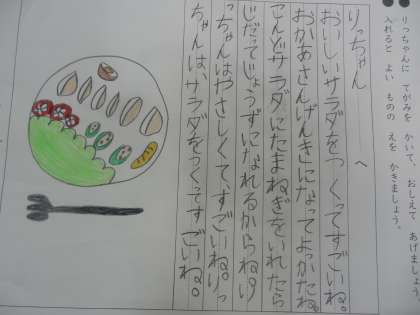 りっちゃんに てがみを かいて、おしえて あげましょう
入れると よい ものの えを かきましょう。
りっちゃん へ
おいしいサラダをつくってすごいね。
おかあさんげんきになってよかたね
こんどサラダにたまねぎをいれたら
じだってじょうずになれるからね。り
っちゃんはやさしくて、すごいね。りっ
ちゃんは、サラダをつくてすごいね。